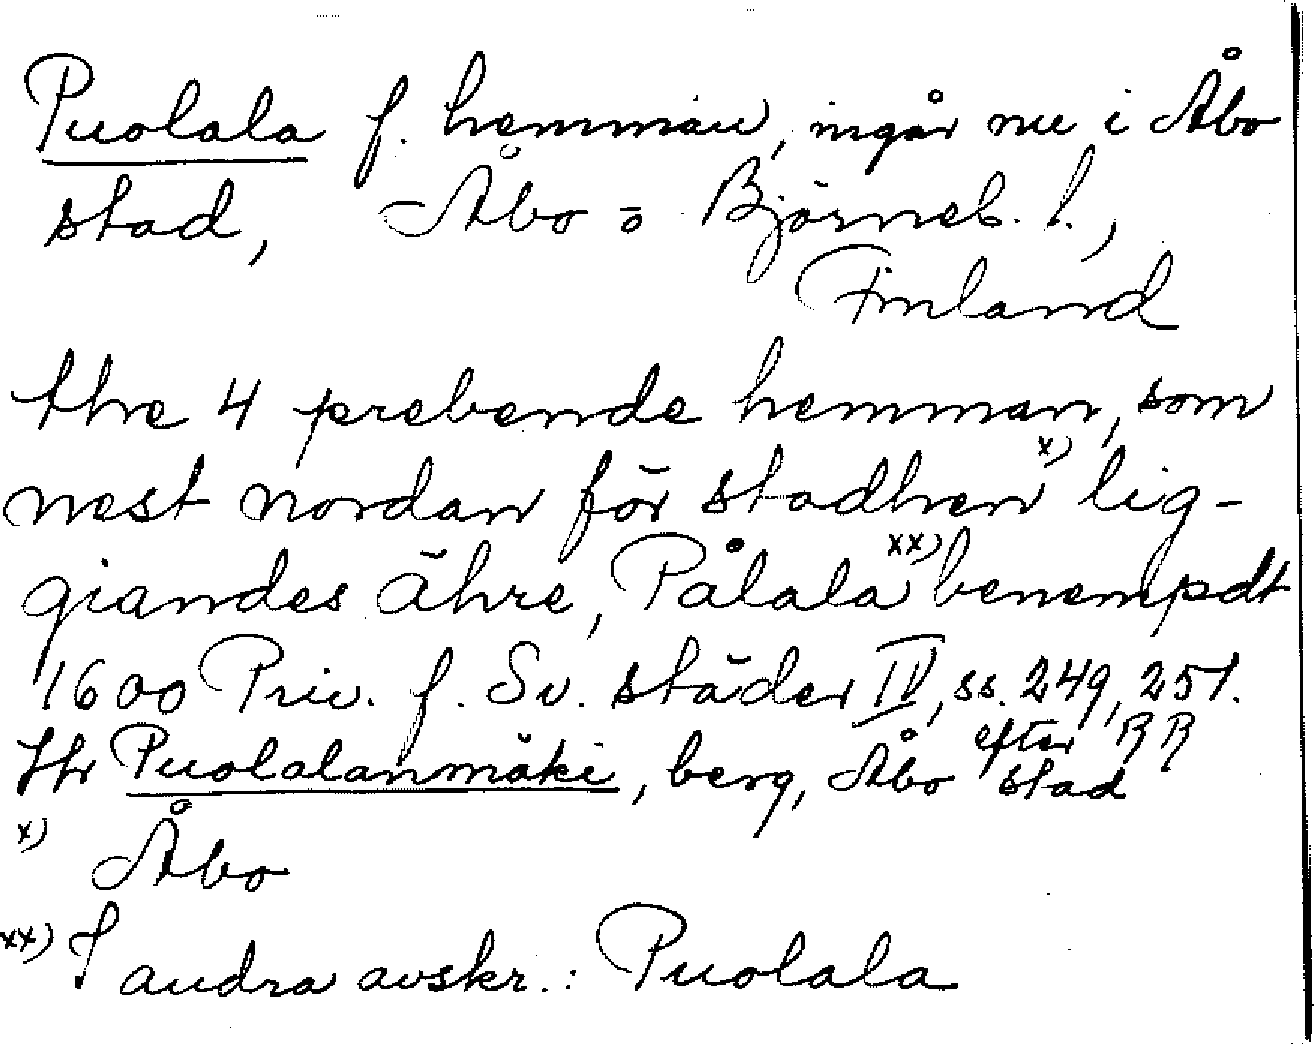 Puolala f. hemman, ingår nu i Åbo
stad, Åbo o Björneb. l.,
Finland
thre 4 prebende hemman, som
nest nordan för stadhen x) lig-
giandes ähre, Pålala xx) benempdt
1600 Priv. f. Sv. städer IV, ss. 249, 251.
efter RR
Hr Puolalanmäki, berg, Åbo stad
x) Åbo
xx) I andra avskr.: Puolala